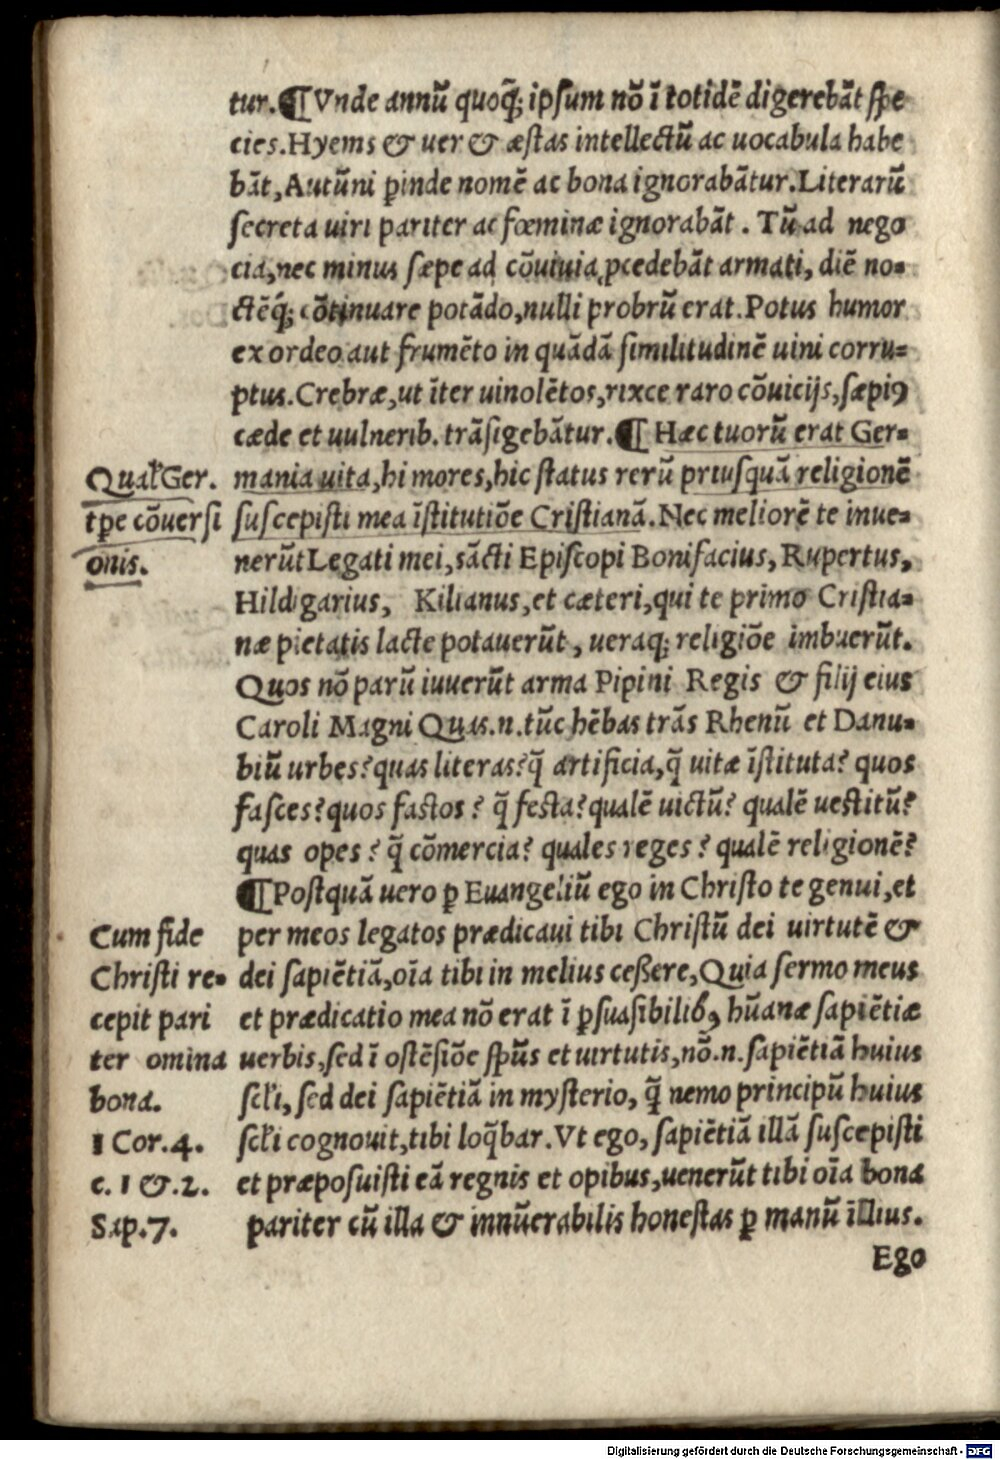 tur.¶ Vnde annũ quoq̃; ipsum nõ ĩ totidẽ digerebãt sp̃e
cies.Hyems & uer & æstas intellectũ ac uocabula habe
bãt, Autũni ꝑinde nomẽ ac bona ignorabãtur. Literarũ
secreta uiri pariter ac fœminæ ignorabãt . Tũ ad nego
cia, nec minus sæpe ad cõuiuia ꝓcedebãt armati, diẽ no-
ctẽq́; cõtinuare potãdo, nulli probrũ erat. Potus humor
ex ordeo aut frumẽto in quãdã similitudinẽ uini corru-
ptus. Crebræ, ut ĩter uinolẽtos, rixce raro cõuicijs, sæpiꝰ
cæde et uulnerib. trãsigebãtur.¶ Hæc tuorũ erat Ger-
mania uita, hi mores, hic status rerũ priusquã religionẽ
suscepisti mea ĩstitutiõe Cristianã. Nec meliorẽ te inue-
nerũt Legati mei, sãcti Episcopi Bonifacius, Rupertus,
Hildigarius, Kilianus, et cæteri, qui te primo Cristia-
næ pietatis lacte potauerũt, ueraq; religiõe imbuerũt.
Quos nõ parũ iuuerũt arma Pipini Regis & filij eius
Caroli Magni Quas.n.tũc hẽbas trãs Rhenũ et Danu-
biũ urbes? quas literas? q̃ artificia, q̃ uitæ ĩstituta? quos
fasces? quos fastos? q̃ festa? qualẽ uictũ? qualẽ uestitũ?
quas opes? q̃ cõmercia? quales reges? qualẽ religionẽ?
¶Postquã uero ꝑ Euangeliũ ego in Christo te genui, et
per meos legatos prædicaui tibi Christũ dei uirtutẽ &
dei sapiẽtiã, oĩa tibi in melius ceßere, Quia sermo meus
et prædicatio mea nõ erat ĩ ꝑsuasibilibꝰ hũanæ sapiẽtiæ
uerbis, sed ĩ ostẽsiõe sp̃us et uirtutis, nõ.n. sapiẽtiã huius
scl̃i, sed dei sapiẽtiã in mysterio, q̃ nemo principũ huius
scl̃i cognouit, tibi loq̃bar. Vt ego, sapiẽtiã illã suscepisti
et præposuisti eã regnis et opibus, uenerũt tibi oĩa bona
pariter cũ illa & innũerabilis honestas ꝑ manũ ĩllius.
Ego
Qual̃ Ger.
tp̃e cõuersi
onis.
Cum fide
Christi re-
cepit pari
ter omina
bona.
1 Cor.4.
c. 1 &.2.
Sap.7.
Digitalisierung gefördert durch die Deutsche Forschungsgemeinschaft - DFG